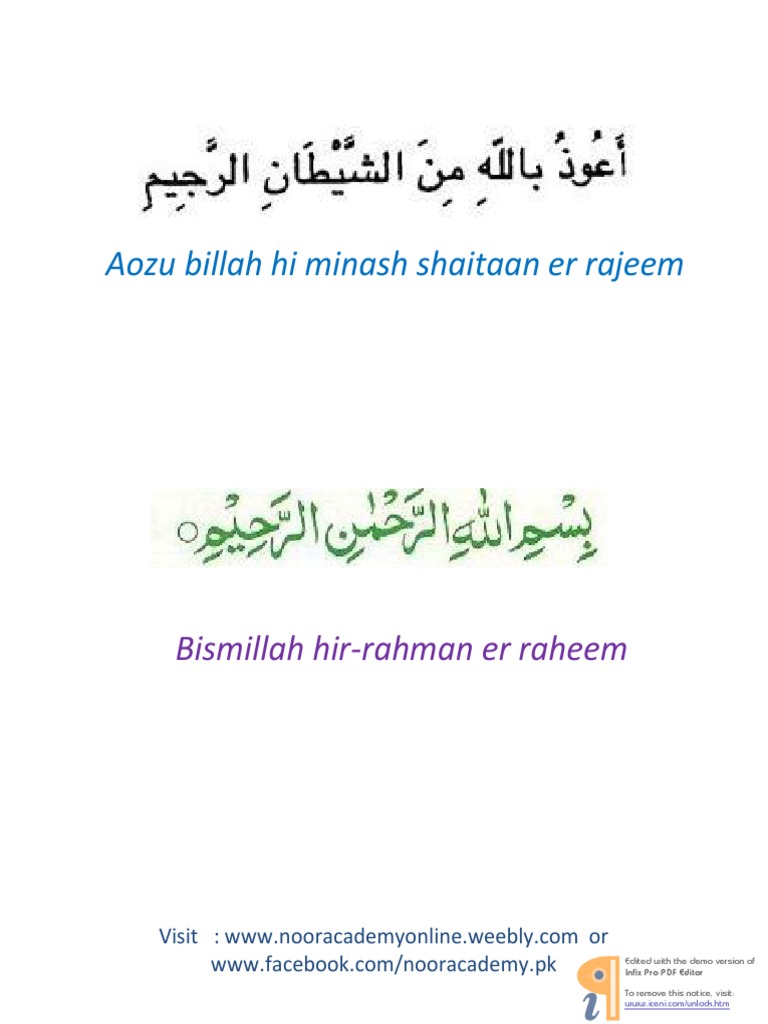 أَعُوذُ بِاللَّهِ مِنَ الشَّيْطَانِ الرَّجِيمِ
Aozu billah hi minash shaitaan er rajeem
بِسْمِ اللهِ الرَّحْمٰنِ الرَّحِيْمِ
Bismillah hir-rahman er raheem
Visit : www.nooracademyonline.weebly.com or
www.facebook.com/nooracademy.pk
Edited with the demo version of
Infix Pro PDF Editor
To remove this notice, visit:
www.iceni.com/unlock.htm